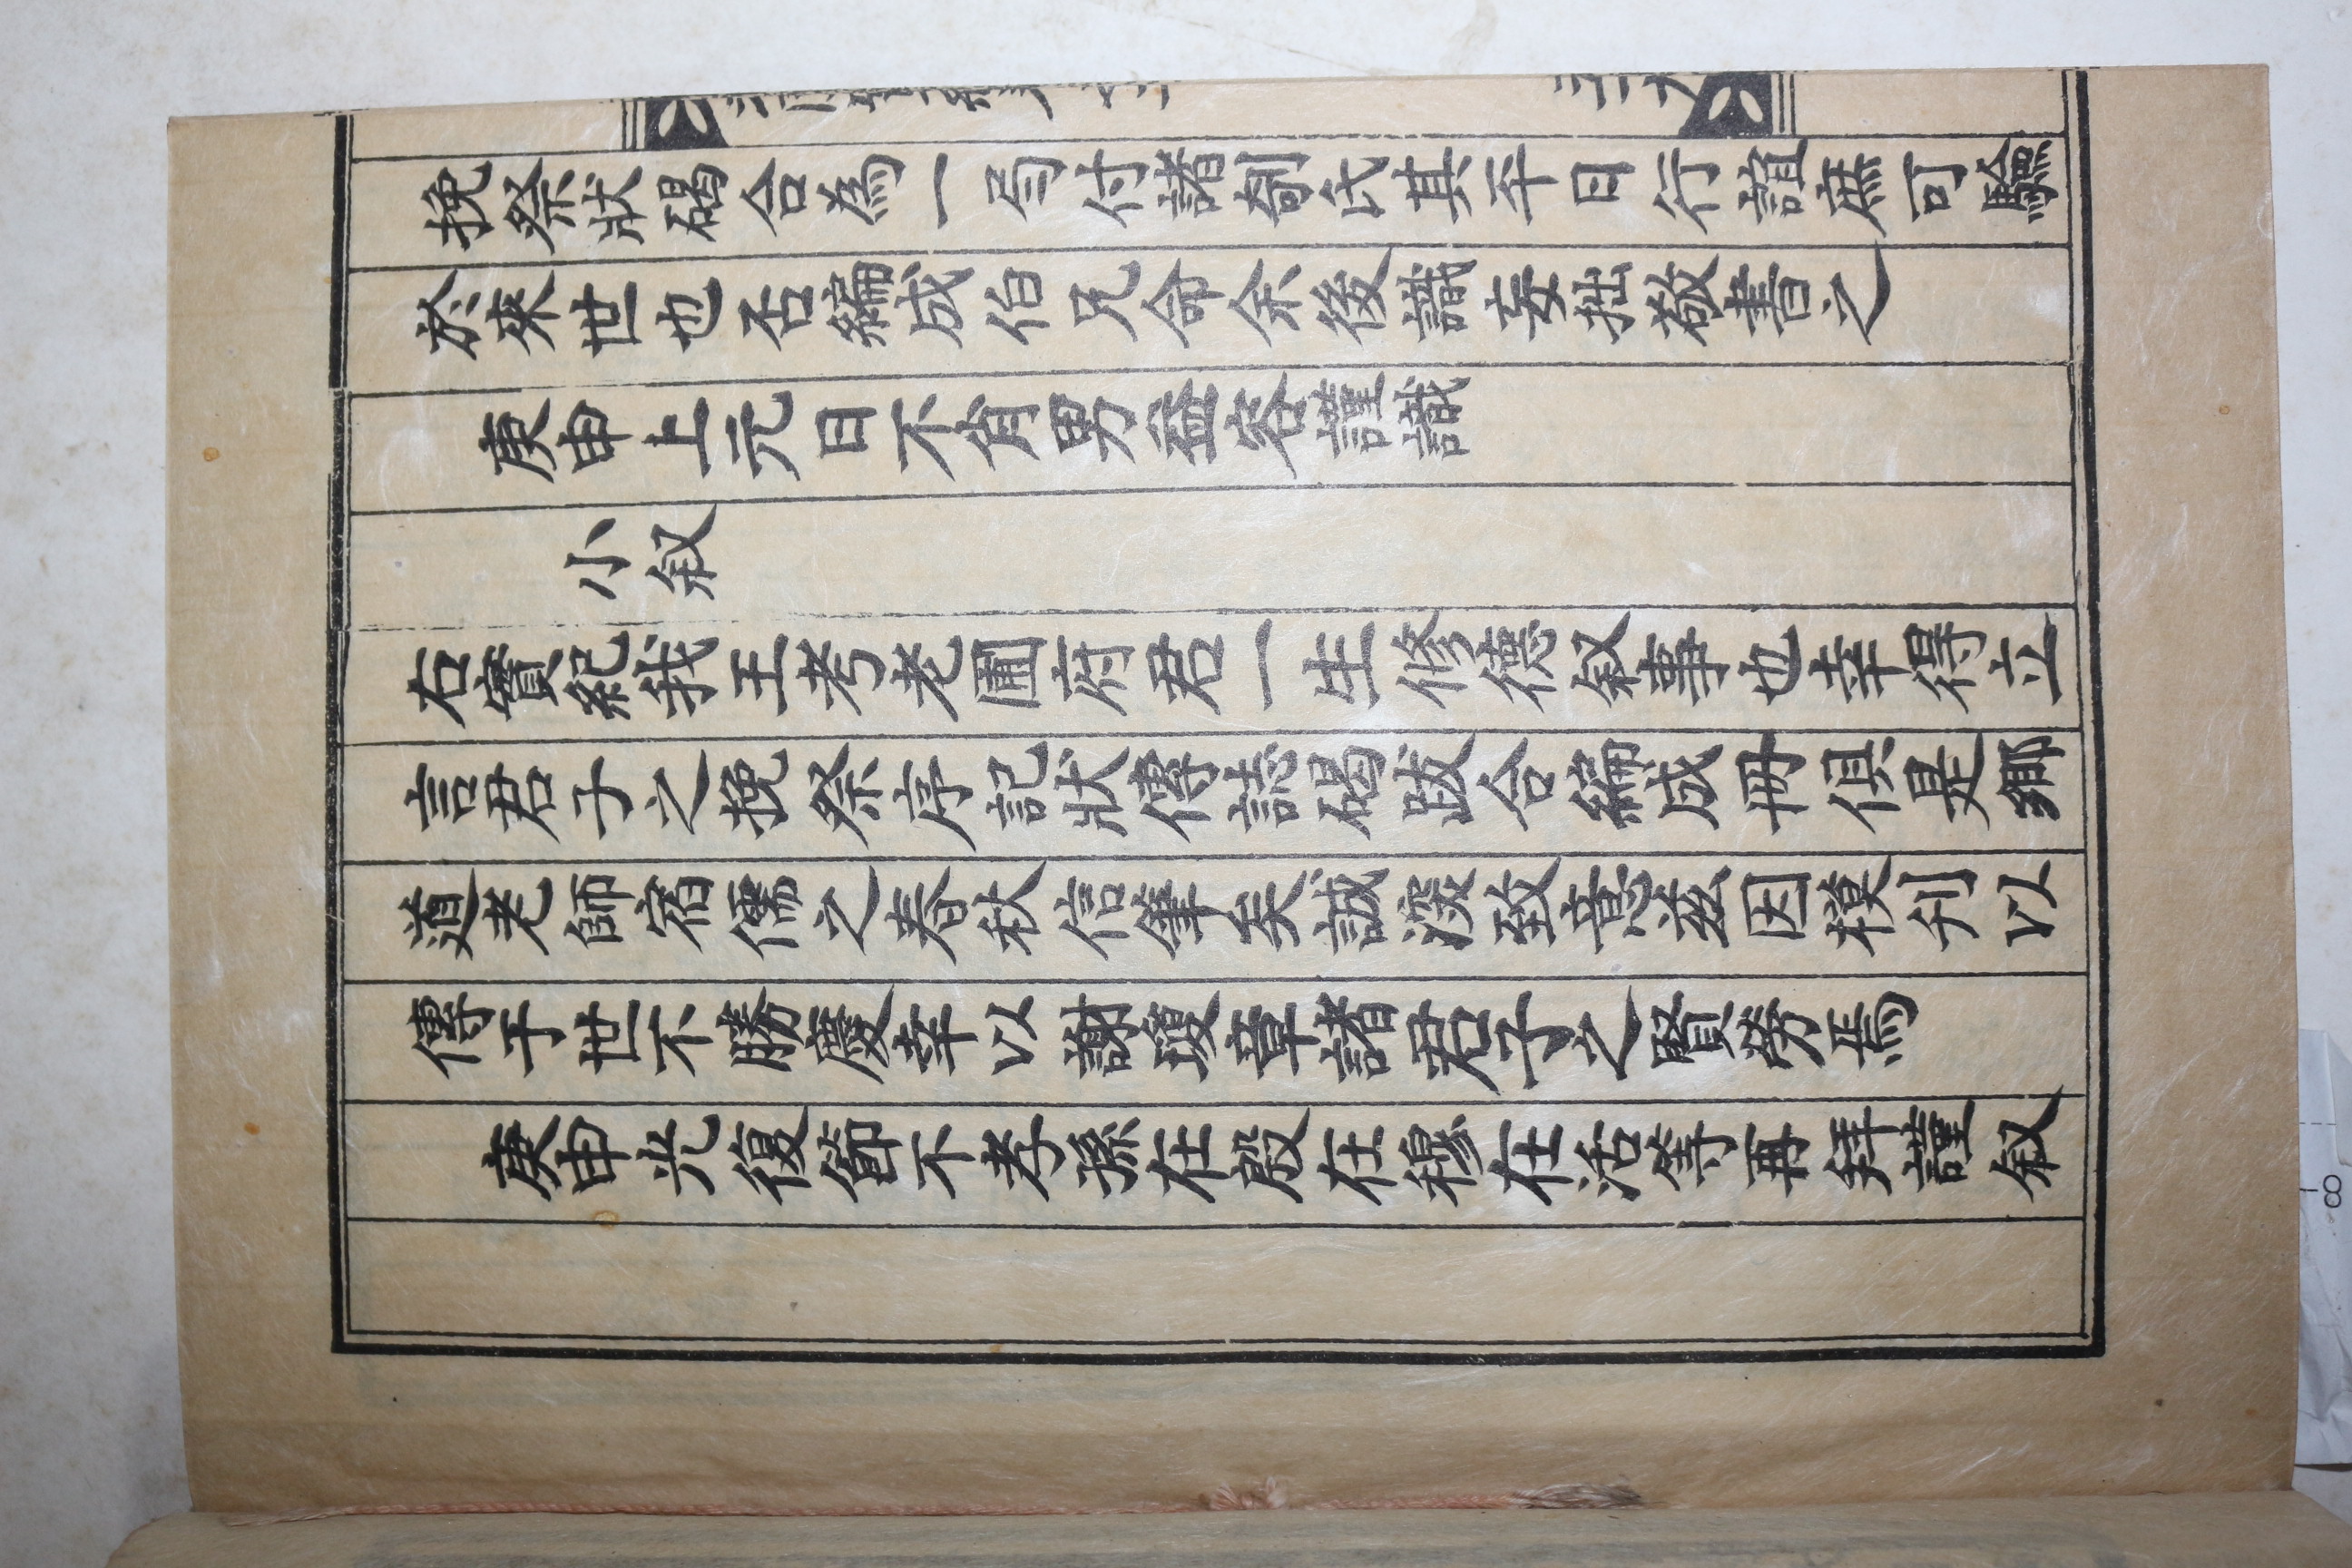 挽祭狀碣合為一局付諸剞氏其平日行誼庶可驗
於來世也否編成伯兄命余後識妄拙敬書之
庚申上元日不肖男益容謹識
小叙
右實紀我王考老圃府君一生修德叙事也幸得立
言君子之挽祭序記狀傳誌碣跋合編成冊俱是鄉
道老師宿儒之春秋信筆矣誠深致意玆因模刋以
傳于世不勝慶幸以謝瓊章諸君子之賢勞焉
庚申光復節不孝孫在殷在穆在活等再拜謹叙